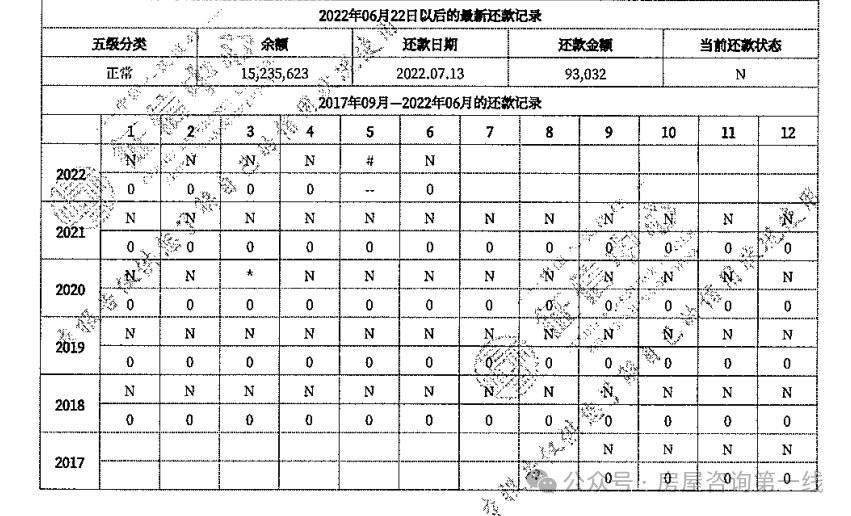 2022年06月22日以后的最新还款记录
五级分类 余额 还款日期 还款金额 当前还款状态
正常 15,235,623 2022.07.13 93,032 N
2017年09月—2022年06月的还款记录
1 2 3 4 5 6 7 8 9 10 11 12
2022 N N N N # N
0 0 0 0 -- 0
2021 N N N N N N N N N N N N
0 0 0 0 0 0 0 0 0 0 0 0
2020 N N * N N N N N N N N N
0 0 0 0 0 0 0 0 0 0 0 0
2019 N N N N N N N N N N N N
0 0 0 0 0 0 0 0 0 0 0 0
2018 N N N N N N N N N N N N
0 0 0 0 0 0 0 0 0 0 0 0
2017 N N N N
0 0 0 0
公众号 · 房屋咨询第一线